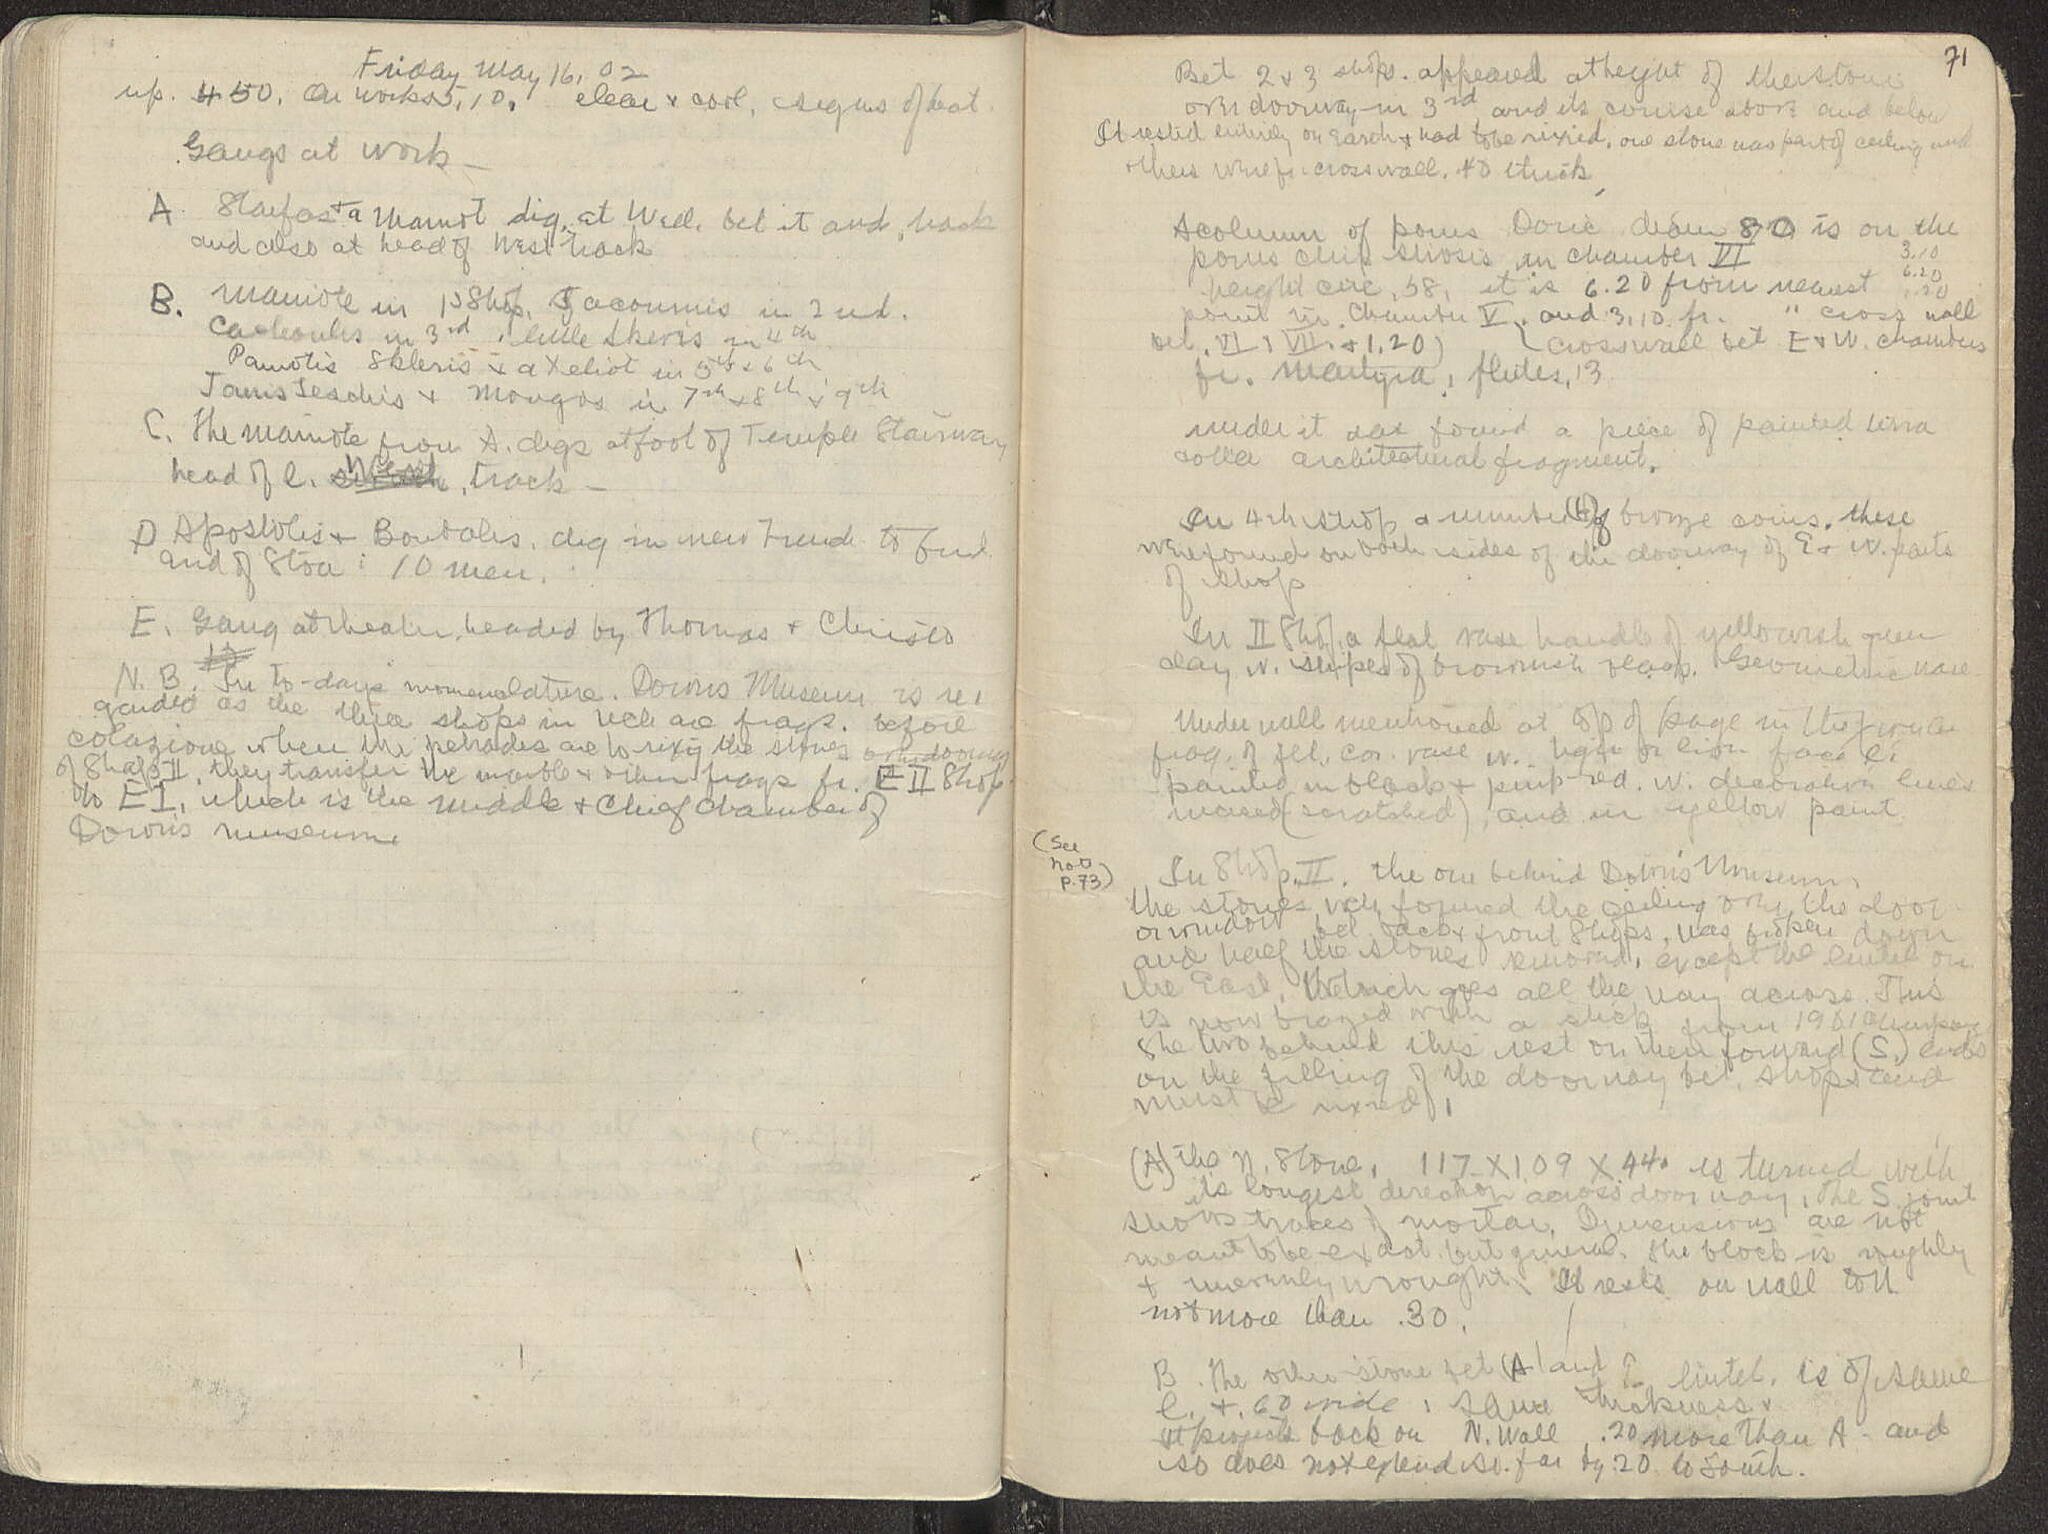 Friday May 16, 02
up. 4 50. On works 5,10. clear & cool, signs of heat.
Gangs at work —
A Staifas & a Mainot dig. at Well. bet it and, track
and also at head of West track
B. Mainote in 1 Shop. Jacoumis in 2nd.
in 3rd, little Skeris in 4th
Panotis Skleris & a Xeliot in 5th & 6th
Janis Leschis & Mongos in 7th & 8th & 9th
C. The Mainote from A. digs at foot of Temple Stairway
head of E. track —
D Apostolis & Boudalis. dig in new Trench to find
end of Stoa : 10 men.
E. Gang at theater, headed by Thomas & Christo
N. B. In to-day's nomenclature. Dorris Museum is re-
garded as the three shops in wch are frags. before
colazione when the petrades are to rixing the stones over doorway
of Shop II, they transfer the marble & other frags fr. E II Shop
to E I, which is the middle & Chief chamber of
Dorris museum.
71
Bet 2 & 3 shop. appeared at height of the stone
over doorway in 3rd and its course above and below
It rested entirely on earth & had to be rixied. one stone was part of ceiling and
others were fr. crosswall. 40 thick
A column of poros Doric diam 80 is on the
poros chip strosis in chamber VI
3.10
6.20
1.20
height circ. 58, it is 6.20 from nearest
point in Chamber V. and 3.10 fr. " cross wall
bet. VI & VII. & 1.20) (crosswall bet E & W. chambers
fr. Martyra, flutes, 13
under it was found a piece of painted terra
cotta architectural fragment.
In 4th shop a number (4) of bronze coins. these
were found on both sides of the doorway of E & W. parts
of shop
In II Shop a flat vase handle of yellowish green
clay w. stripes of brownish black. Geometric vase
Under wall mentioned at top of page in the
frag. of cor. vase w. tiger or lion face
painted in black & purp-red. w. decoration lines
incised (scratched), and in yellow paint
(See
note
p. 73)
In Shop II. the one behind Dorris' Museum,
the stones wch formed the ceiling over the door
or window bet. back & front Shops, was broken down
and half the stones removed, except the lintel on
the East, which goes all the way across. This
is now braced with a stick from 1901 campaign
The two behind this rest on their forward (S.) ends
on the filling of the doorway bet. shops and
must be rixed,
(A) The N. Stone, 117 X 109 X 44. is turned with
its longest direction across door way, the S. joint
shows traces of mortar. Dimensions are not
meant to be exact but general. the block is roughly
& unevenly wrought. It rests on wall to N
not more than .30.
B. The other stone bet (A) and E lintel. is of same
l. & .60 wide, same thickness &
it projects back on N. Wall .20 more than A - and
so does not extend so. far by .20 to South.